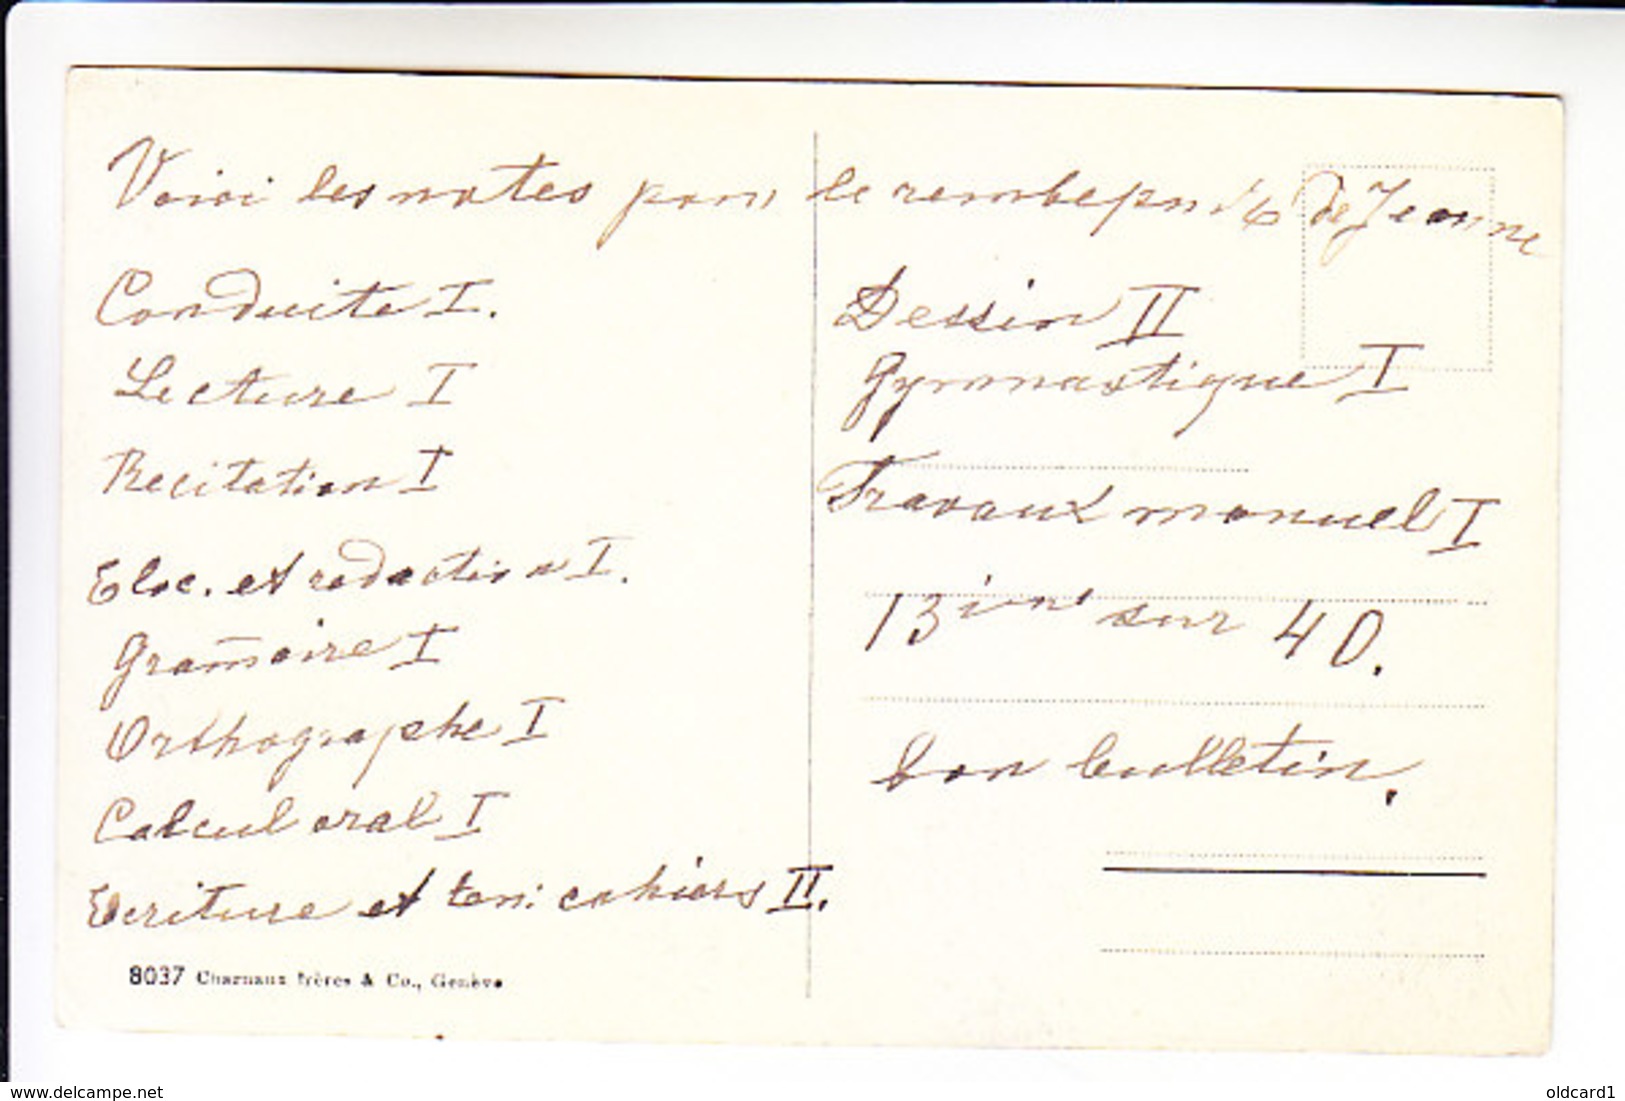 Voici les notes pour le de Jeanne
Conduite I.
Lecture I
Recitation I
Eloc. et redaction I.
Gram̄aire I
Orthographe I
Calcul oral I
Ecriture et ten: cahiers II.
8037 Charnaux frères & Co., Genève
Dessin II
Gymnastique I
Travaux manuel I
13 sur 40.
bon bulletin.
www.delcampe.net
oldcard1